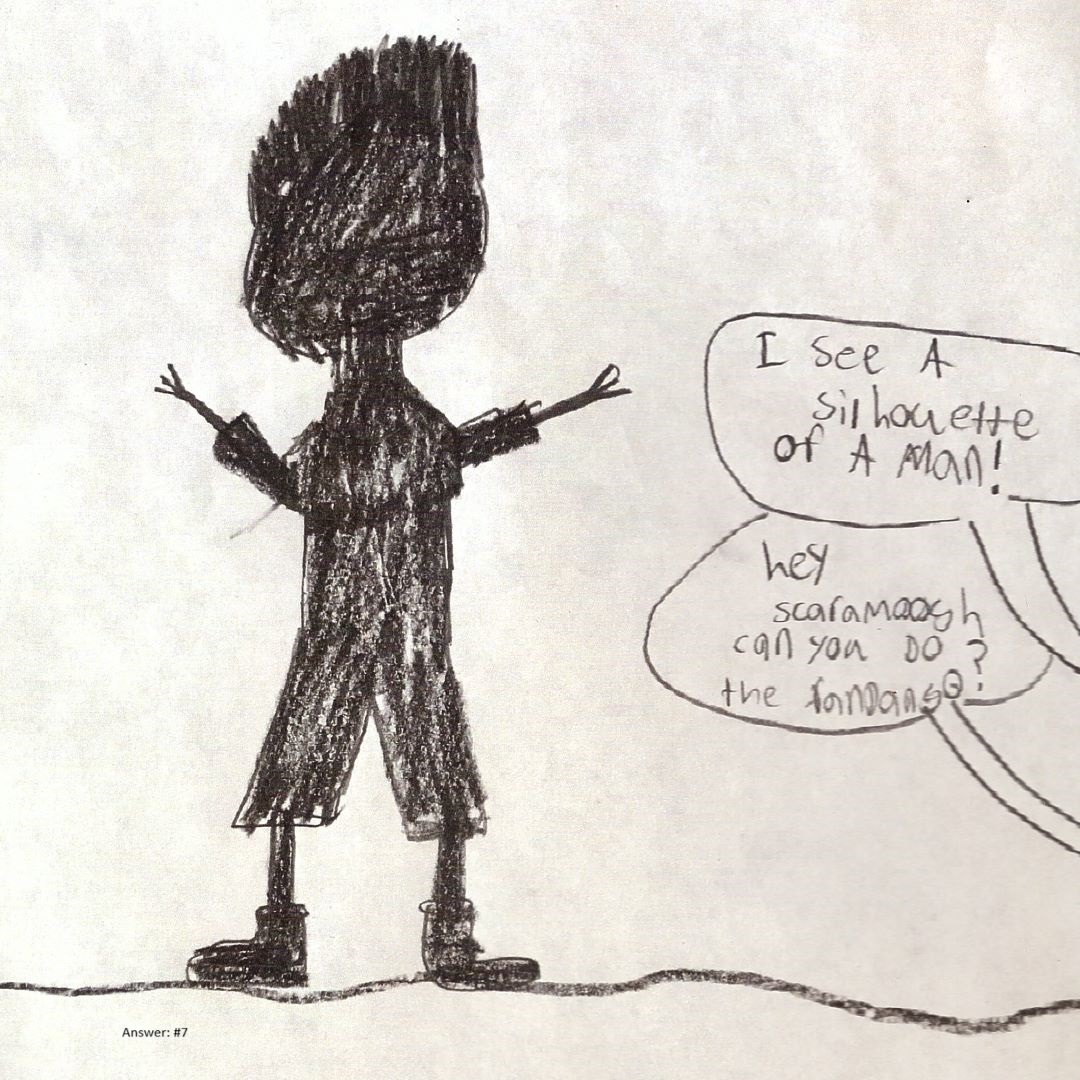 I see A
silhouette
of A Man!
hey
scaramoosh
can you DO
the fanDango?
Answer: #7